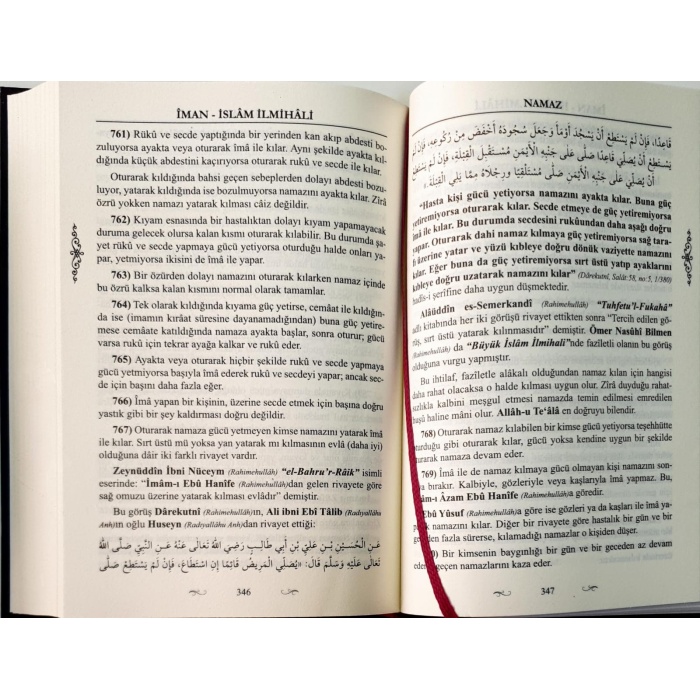 ÎMAN - İSLÂM İLMİHÂLİ
761) Rükû ve secde yaptığında bir yerinden kan akıp abdesti bo-
zuluyorsa ayakta veya oturarak îmâ ile kılar. Aynı şekilde ayakta kıl-
dığında küçük abdestini kaçırıyorsa oturarak rükû ve secde ile kılar.
Oturarak kıldığında bahsi geçen sebeplerden dolayı abdesti bozu-
luyor, yatarak kıldığında ise bozulmuyorsa namazını ayakta kılar. Zîrâ
özrü yokken namazı yatarak kılması câiz değildir.
762) Kıyam esnasında bir hastalıktan dolayı kıyam yapamayacak
duruma gelecek olursa kalan kısmı oturarak kılabilir. Bu durumda şa-
yet rükû ve secde yapmaya gücü yetiyorsa oturduğu halde onları ya-
par, yetmiyorsa ikisini de îmâ ile yapar.
763) Bir özürden dolayı namazını oturarak kılarken namaz içinde
bu özrü kalksa kalan kısmını normal olarak tamamlar.
764) Tek olarak kıldığında kıyama güç yetirse, cemâat ile kıldığın-
da ise (imamın kırâat süresine dayanamadığından) buna güç yetirme-
se cemâate katıldığında namaza ayakta başlar, sonra oturur; gücü
varsa rükû için tekrar ayağa kalkar ve rukû eder.
765) Ayakta veya oturarak hiçbir şekilde rukû ve secde yapmaya
gücü yetmiyorsa başıyla îmâ ederek rukû ve secdeyi yapar; ancak sec-
de için başını daha fazla eğer.
766) Îmâ yapan bir kişinin, üzerine secde etmek için başına doğru
yastık gibi bir şey kaldırması doğru değildir.
767) Oturarak namaza gücü yetmeyen kimse namazını yatarak îmâ
ile kılar. Sırt üstü mü yoksa yan yatarak mı kılmasının evlâ (daha iyi)
olduğuna dâir iki farklı rivayet vardır.
Zeynüddîn İbni Nüceym (Rahimehullâh) "el-Bahru'r-Râik" isimli
eserinde: "İmâm-ı Ebû Hanîfe (Rahimehullâh)dan gelen rivayete göre
sağ omuzu üzerine yatarak kılması evlâdır" demiştir.
Bu görüş Dârekutnî (Rahimehullâh)ın, Ali ibni Ebî Tâlib (Radıyallâhu
Anh)ın oğlu Huseyn (Radıyallâhu Anh)dan rivayet ettiği:
عَنِ الْحُسَيْنِ بْنِ عَلِيِّ بْنِ أَبِي طَالِبٍ رَضِيَ اللّٰهُ تَعَالَى عَنْهُ عَنِ النَّبِيِّ صَلَّى اللّٰهُ
تَعَالَى عَلَيْهِ وَسَلَّمَ قَالَ: «يُصَلِّي الْمَرِيضُ قَائِمًا إِنِ اسْتَطَاعَ، فَإِنْ لَمْ يَسْتَطِعْ صَلَّى
346
NAMAZ
قَاعِدًا، فَإِنْ لَمْ يَسْتَطِعْ أَنْ يَسْجُدَ أَوْمَأَ وَجَعَلَ سُجُودَهُ أَخْفَضَ مِنْ رُكُوعِهِ، فَإِنْ لَمْ
يَسْتَطِعْ أَنْ يُصَلِّيَ قَاعِدًا صَلَّى عَلَى جَنْبِهِ الْأَيْمَنِ مُسْتَقْبِلَ الْقِبْلَةِ، فَإِنْ لَمْ يَسْتَطِعْ
أَنْ يُصَلِّيَ عَلَى جَنْبِهِ الْأَيْمَنِ صَلَّى مُسْتَلْقِيًا وَرِجْلَاهُ مِمَّا يَلِي الْقِبْلَةَ.»
"Hasta kişi gücü yetiyorsa namazını ayakta kılar. Buna güç
yetiremiyorsa oturarak kılar. Secde etmeye de güç yetiremiyorsa
îmâ ile kılar. Bu durumda secdesini rukûundan daha aşağı doğru
yapar. Oturarak dahi namaz kılmaya güç yetiremiyorsa sağ tara-
fı üzerine yatar ve yüzü kıbleye doğru dönük vaziyette namazını
kılar. Eğer buna da güç yetiremiyorsa sırt üstü yatıp ayaklarını
kıbleye doğru uzatarak namazını kılar" (Dârekutnî, Salât:58, no:5, 1/380)
hadîs-i şerîfine daha uygun düşmektedir.
Alâüddîn es-Semerkandî (Rahimehullâh) "Tuhfetu'l-Fukahâ"
adlı kitabında her iki görüşü rivayet ettikten sonra "Tercih edilen gö-
rüş, sırt üstü yatarak kılınmasıdır" demiştir. Ömer Nasûhî Bilmen
(Rahimehullâh) da "Büyük İslâm İlmihali"nde fazîletli olanın bu görüş
olduğuna vurgu yapmıştır.
Bu ihtilaf, fazîletle alâkalı olduğundan namaz kılan için hangisi
daha rahat olacaksa o halde kılması uygun olur. Zîrâ duyduğu rahat-
sızlıkla kalbini meşgul etmesi namazda temin edilmesi emredilen
huşû haline mâni olur. Allâh-u Te'âlâ en doğruyu bilendir.
768) Oturarak namaz kılabilen bir kimse gücü yetiyorsa teşehhütte
oturduğu gibi oturarak kılar, gücü yoksa kendine uygun bir şekilde
oturarak namaza devam eder.
769) Îmâ ile de namaz kılmaya gücü olmayan kişi namazını son-
raya bırakır. Kalbiyle, gözleriyle veya kaşlarıyla îmâ yapamaz. Bu,
İmâm-ı Âzam Ebû Hanîfe (Rahimehullâh)a göredir.
Ebû Yûsuf (Rahimehullâh)a göre ise gözleri ya da kaşları ile îmâ ya-
parak namazını kılar. Diğer bir rivayete göre hastalık bir gün ve bir
geceden fazla sürerse, kılamadığı namazlar o kişiden düşer.
) Bir kimsenin baygınlığı bir gün ve bir geceden az devam
ederse geçen namazlarını kaza eder.
347